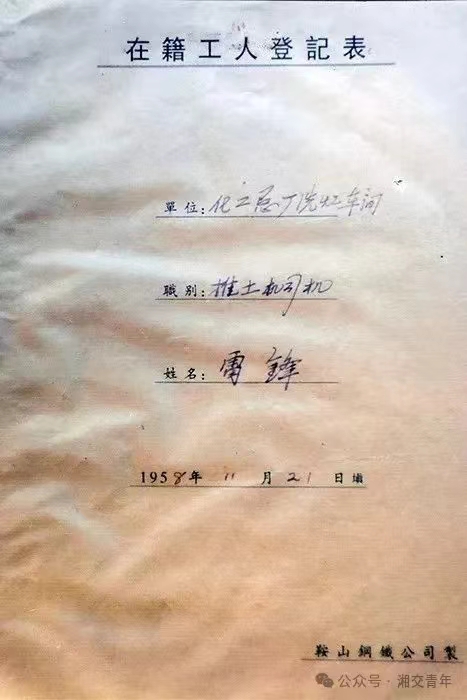 在籍工人登記表
單位:化工总厂洗煤车间
職别:推土机司机
姓名:雷鋒
1958年11月21日填
鞍山鋼鐵公司製
公众号·湘交青年